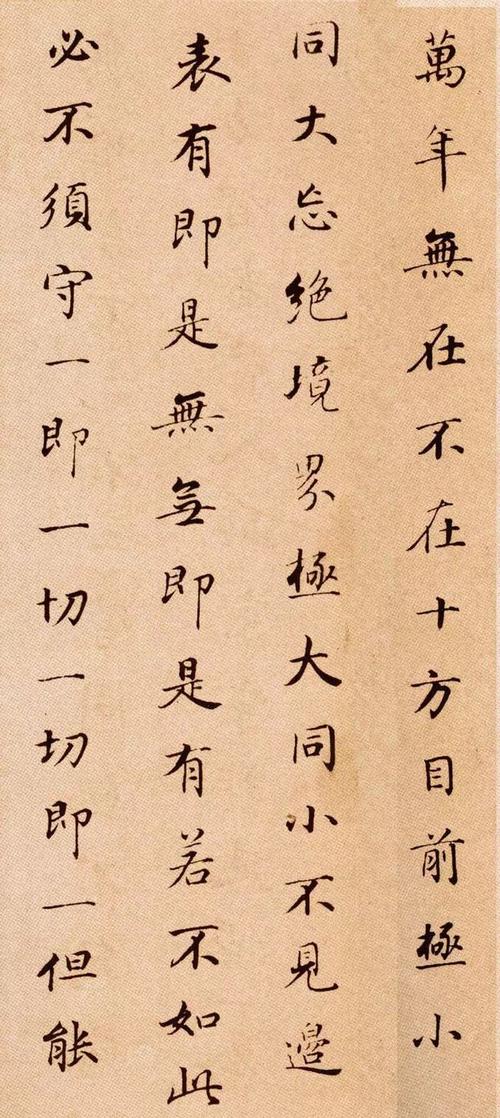 萬年無在不在十方目前極小
同大忘絕境界極大同小不見邊
表有即是無無即是有若不如此
必不須守一即一切一切即一但能